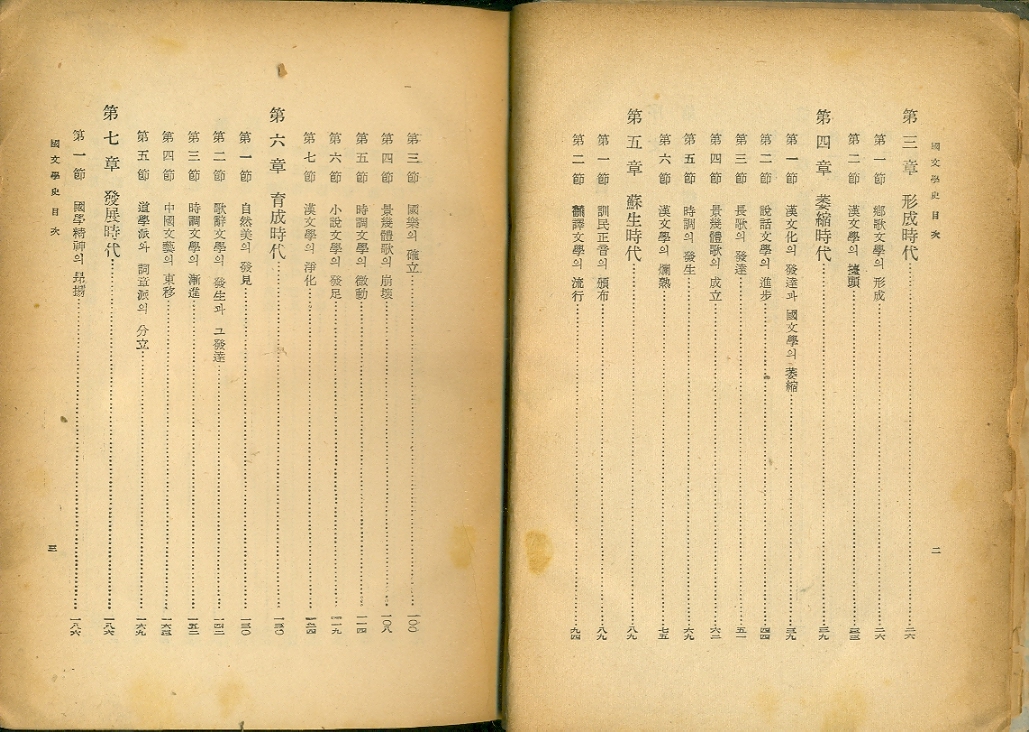 國文學史目次
第三章 形成時代 二六
第一節 鄕歌文學의 形成 二六
第二節 漢文學의 擡頭 三三
第四章 萎縮時代 三九
第一節 漢文化의 發達과 國文學의 萎縮 三九
第二節 說話文學의 進步 四四
第三節 長歌의 發達 五一
第四節 景幾體歌의 成立 六二
第五節 時調의 發生 六九
第六節 漢文學의 爛熟 七五
第五章 蘇生時代 八九
第一節 訓民正音의 頒布 八九
第二節 飜譯文學의 流行 九四
二
第三節 國樂의 確立 一〇〇
第四節 景幾體歌의 崩壞 一〇八
第五節 時調文學의 微動 一一四
第六節 小說文學의 發足 一一九
第七節 漢文學의 淨化 一二四
第六章 育成時代 一三〇
第一節 自然美의 發見 一三〇
第二節 歌辭文學의 發生과 그 發達 一四二
第三節 時調文學의 漸進 一五二
第四節 中國文藝의 東移 一六三
第五節 道學派와 詞章派의 分立 一六九
第七章 發展時代 一八六
第一節 國學精神의 昻揚 一八六
國文學史目次
三